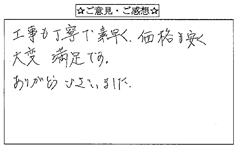 ☆ご意見・ご感想☆
工事も丁寧で素早く、価格も安く
大変 満足です。
ありがとうございました。